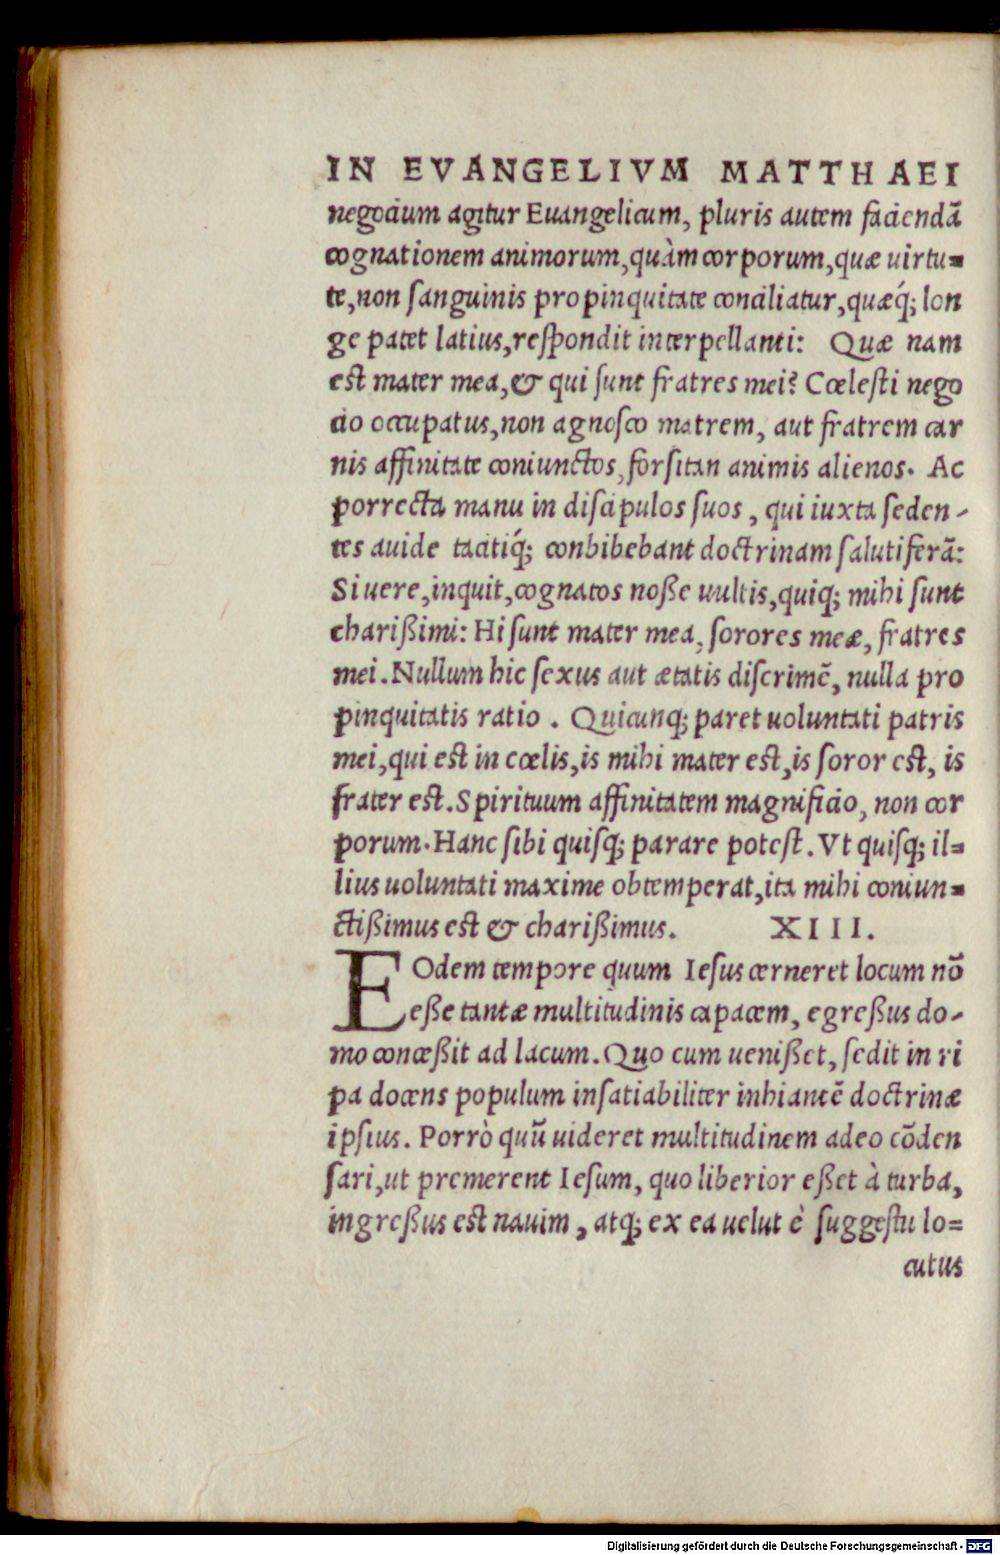 IN EVANGELIVM MATTHAEI
negocium agitur Euangelicum, pluris autem faciendā
cognationem animorum, quàm corporum, quæ uirtu=
te, non ſanguinis propinquitate conciliatur, quæq́; lon
ge patet latius, reſpondit interpellanti: Quæ nam
est mater mea, & qui ſunt fratres mei? Cœleſti nego
cio occupatus, non agnoſco matrem, aut fratrem car
nis affinitate coniunctos, forſitan animis alienos. Ac
porrecta manu in diſcipulos ſuos, qui iuxta ſeden-
tes auide tacitiq́; conbibebant doctrinam ſalutiferā:
Si uere, inquit, cognatos noße uultis, quiq; mihi ſunt
charißimi: Hi ſunt mater mea, ſorores meæ, fratres
mei. Nullum hic ſexus aut ætatis diſcrimē, nulla pro
pinquitatis ratio. Quicunq; paret uoluntati patris
mei, qui est in cœlis, is mihi mater est, is ſoror est, is
frater est. Spirituum affinitatem magnificio, non cor
porum. Hanc ſibi quiſq; parare potest. Vt quiſq; il=
lius uoluntati maxime obtemperat, ita mihi coniun=
ctißimus est & charißimus. XIII.
EOdem tempore quum Ieſus cerneret locum nō
eße tantæ multitudinis capacem, egreßus do-
mo conceßit ad lacum. Quo cum uenißet, ſedit in ri
pa docens populum inſatiabiliter inhiantē doctrinæ
ipſius. Porrò quū uideret multitudinem adeo cōden
ſari, ut premerent Ieſum, quo liberior eßet à turba,
ingreßus est nauim, atq; ex ea uelut è ſuggeſtu lo=
cutus
Digitalisierung gefördert durch die Deutsche Forschungsgemeinschaft - DFG